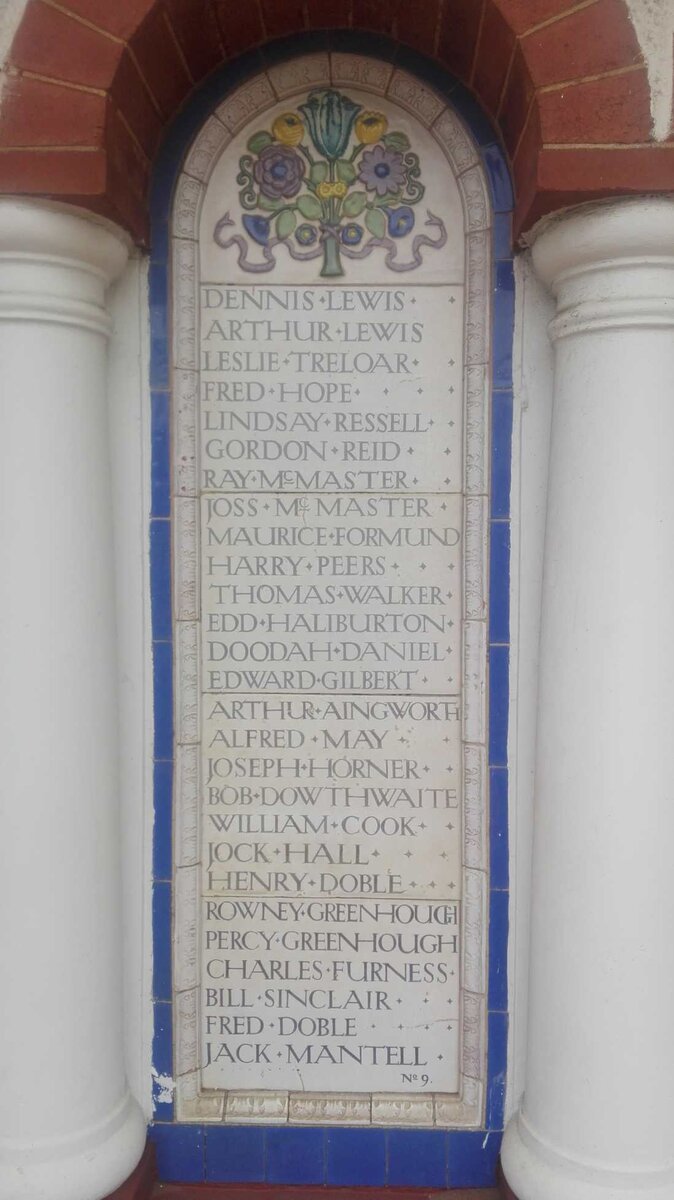 DENNIS · LEWIS · ·
ARTHUR · LEWIS
LESLIE · TRELOAR · ·
FRED · HOPE · · ·
LINDSAY · RESSELL · ·
GORDON · REID · ·
RAY · McMASTER · ·
JOSS · Mc MASTER · ·
MAURICE · FORMUND
HARRY · PEERS · · ·
THOMAS · WALKER ·
EDD · HALIBURTON ·
DOODAH · DANIEL ·
EDWARD · GILBERT · ·
ARTHUR · AINGWORTH
ALFRED · MAY · ·
JOSEPH · HORNER · ·
BOB · DOWTHWAITE
WILLIAM · COOK · ·
JOCK · HALL · · ·
HENRY · DOBLE · · ·
ROWNEY · GREENHOUGH
PERCY · GREENHOUGH
CHARLES · FURNESS ·
BILL · SINCLAIR · · ·
FRED · DOBLE · · · ·
JACK · MANTELL ·
No 9.